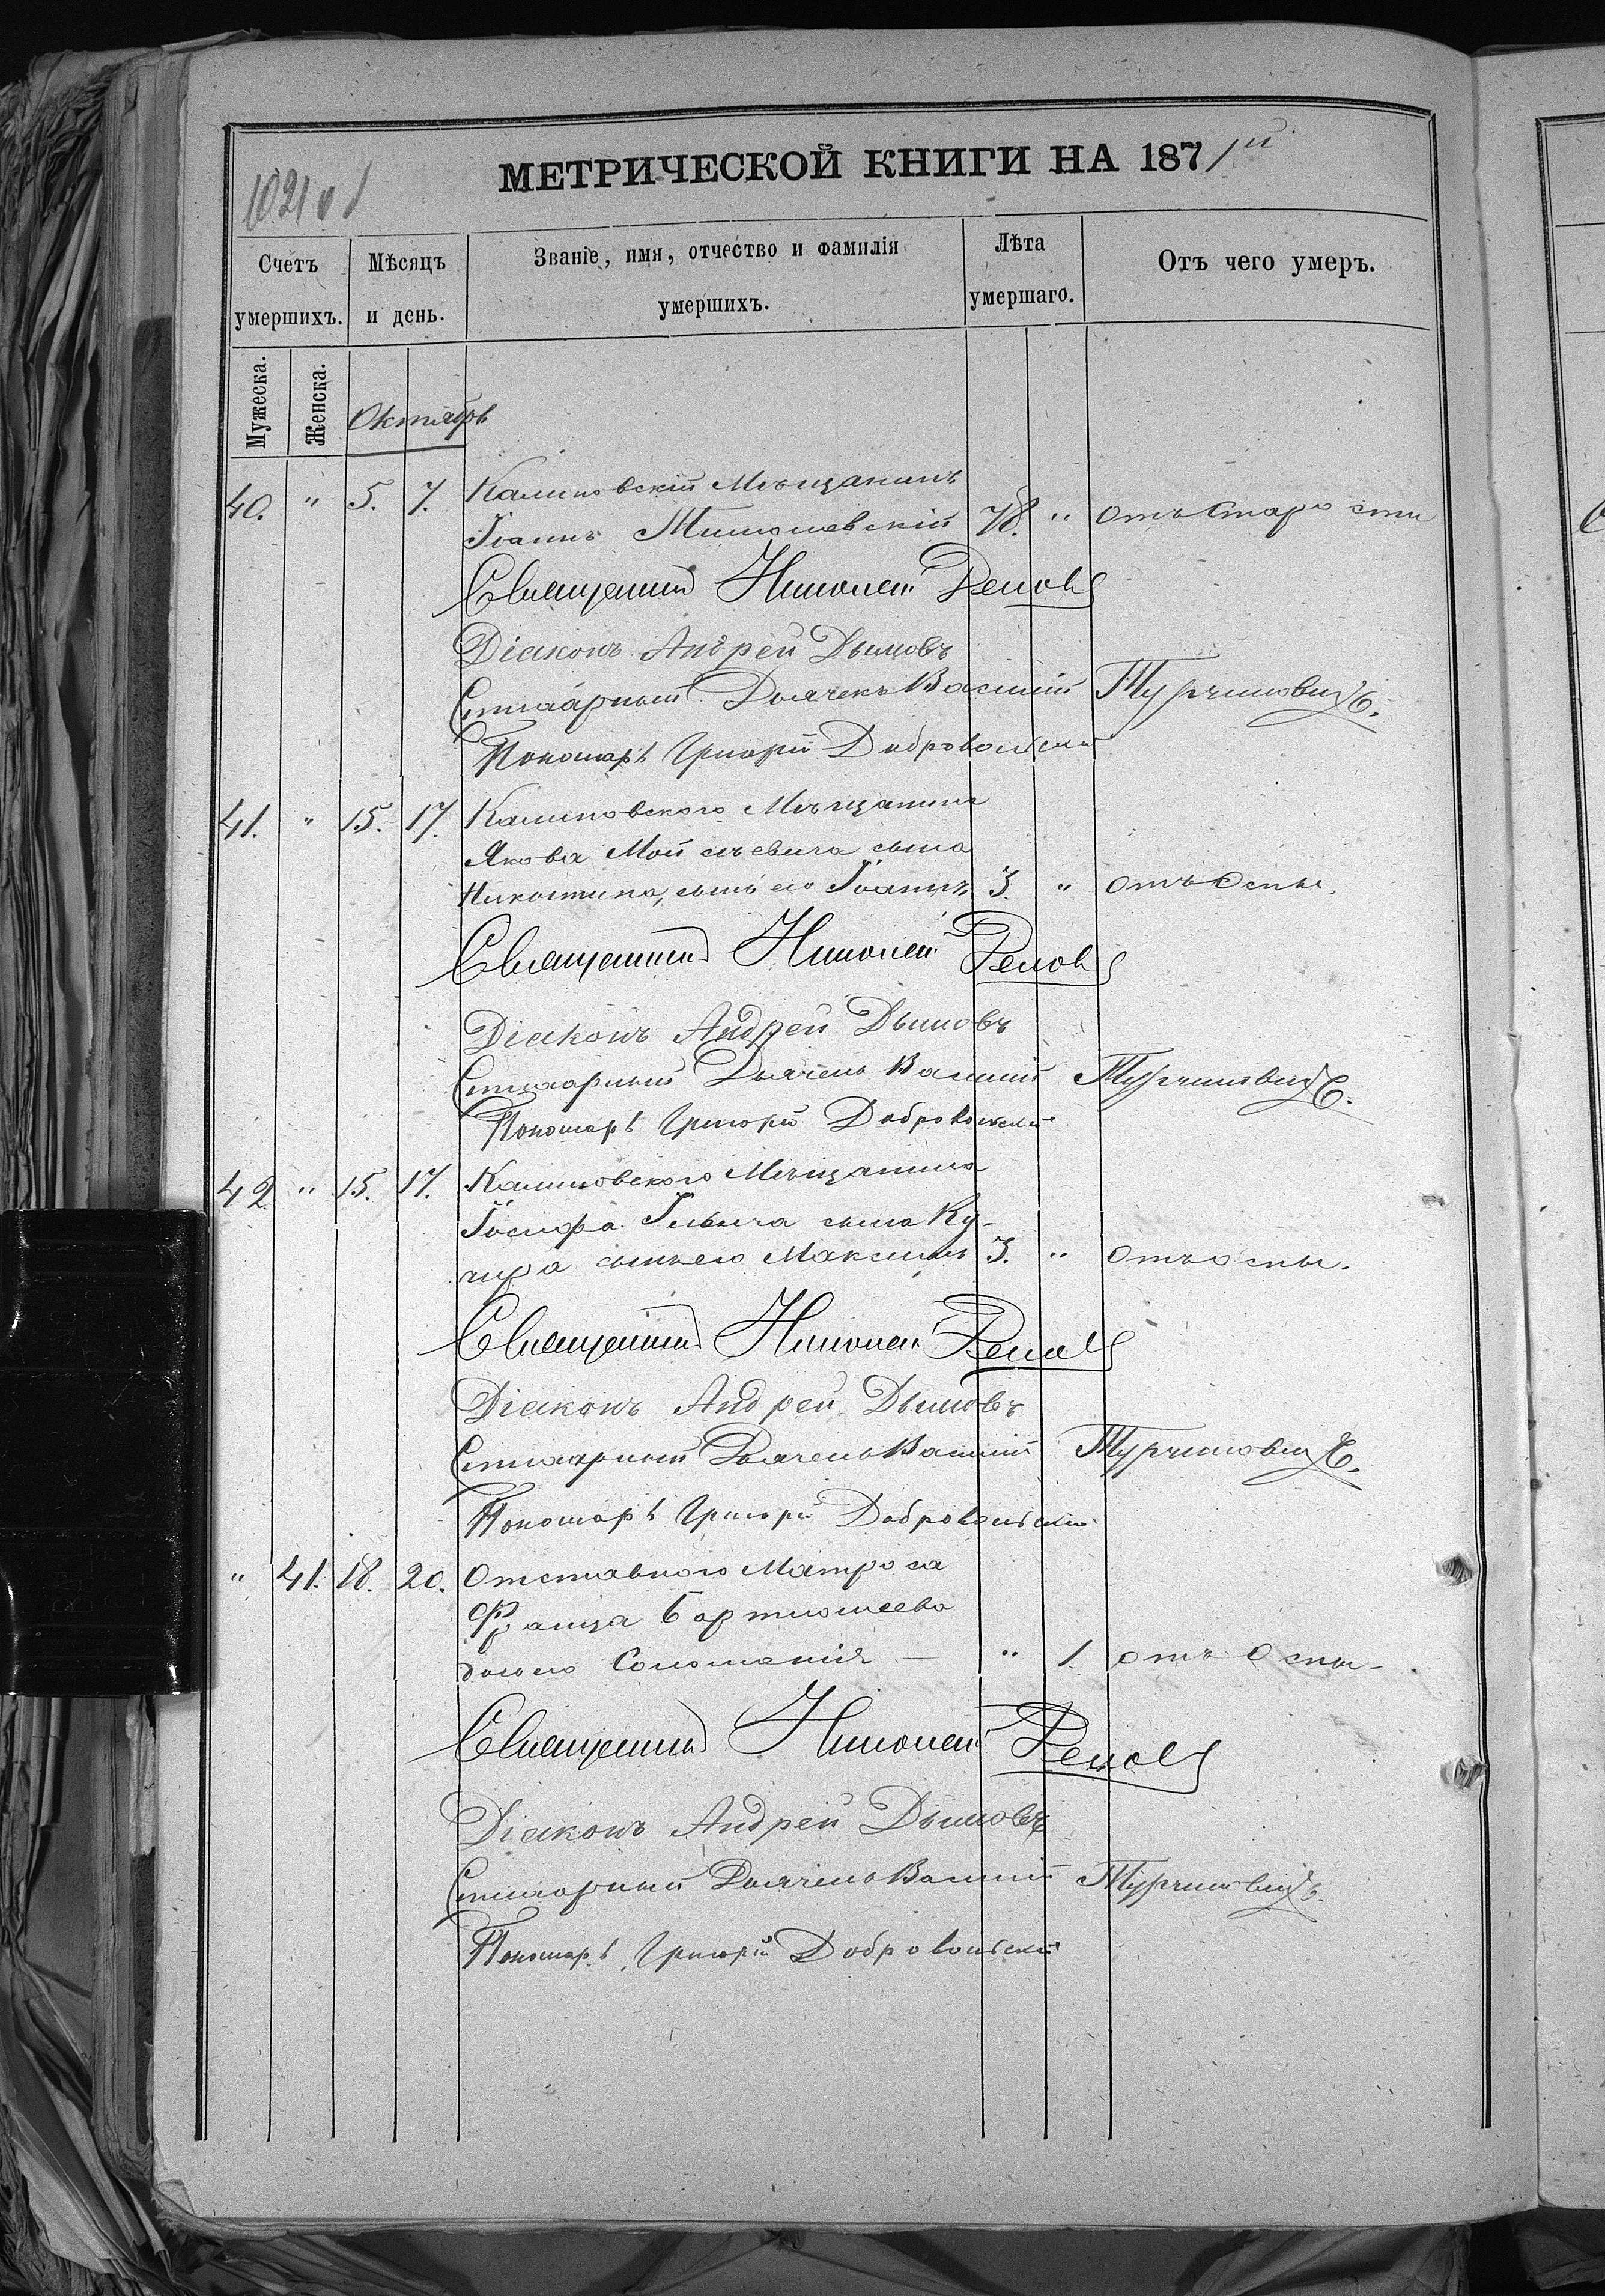 МЕТРИЧЕСКОЙ КНИГИ НА 1871й
Счетъ умершихъ.
Мѣсяцъ и день.
Званіе, имя, отчество и фамилія умершихъ.
Лѣта умершаго.
Отъ чего умеръ.
Мужеска.
Женска.
Октябрь
40. " 5. 7. Калиновскій Мѣщанинъ
Іоаннъ 78. " отъ старости
Священникъ Николай
Діаконъ Андрей Дымовъ
Дьячекъ Василій Турчиновичъ.
Пономарь Григорій Добровольскій
41. " 15. 17. Калиновского Мѣщанина
Якова Мойсѣевича сына
Никитина, сынъ его Іоаннъ 3. " отъ Оспы.
Священникъ Николай
Діаконъ Андрей Дымовъ
Дьячекъ Василій Турчиновичъ.
Пономарь Григорій Добровольскій
42 " 15. 17. Калиновского Мѣщанина
Іосифа Ильича сына Ку-
чира сынъ его Максимъ 3. " отъ оспы.
Священникъ Николай
Діаконъ Андрей Дымовъ
Дьячекъ Василій Турчиновичъ.
Пономарь Григорій Добровольскій
" 41. 18. 20. Отставного Матроса
Франца Бартошеева
дочь его Соломанія — " 1. отъ Оспы-
Священникъ Николай
Діаконъ Андрей Дымовъ
Дьячекъ Василій Турчиновичъ.
Пономарь Григорій Добровольскій